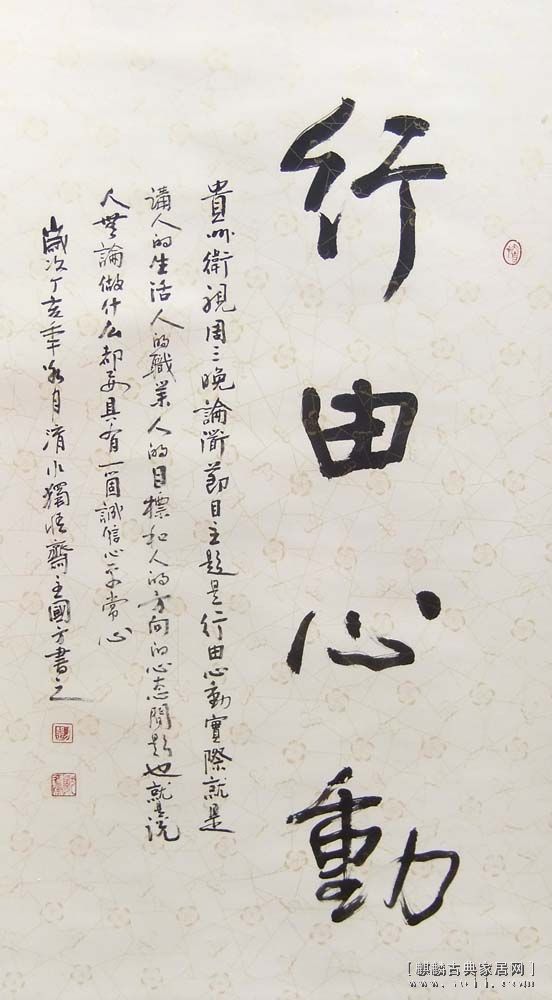 行由心動
貴州衛視周三晚論衜節目主题是行由心動實際就是
講人的生活人的職業人的目標和人的方向的心态問题也就是说
人無論做什么都要具有一個誠信心平常心
歲次丁亥年冬月清水獨悟齋主國方書之
[麒麟古典家居网]